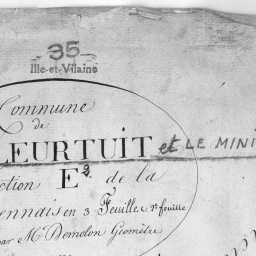 35
Ille-et-Vilaine
Commune
de
LEURTUIT et LE MINI
ction E³ de la
ennais en 3 Feuilles 1re feuille
par Mr Demelon Géomètre